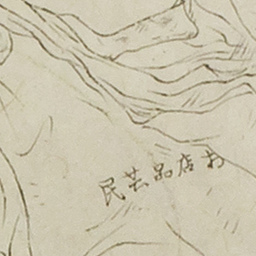 民芸品店お